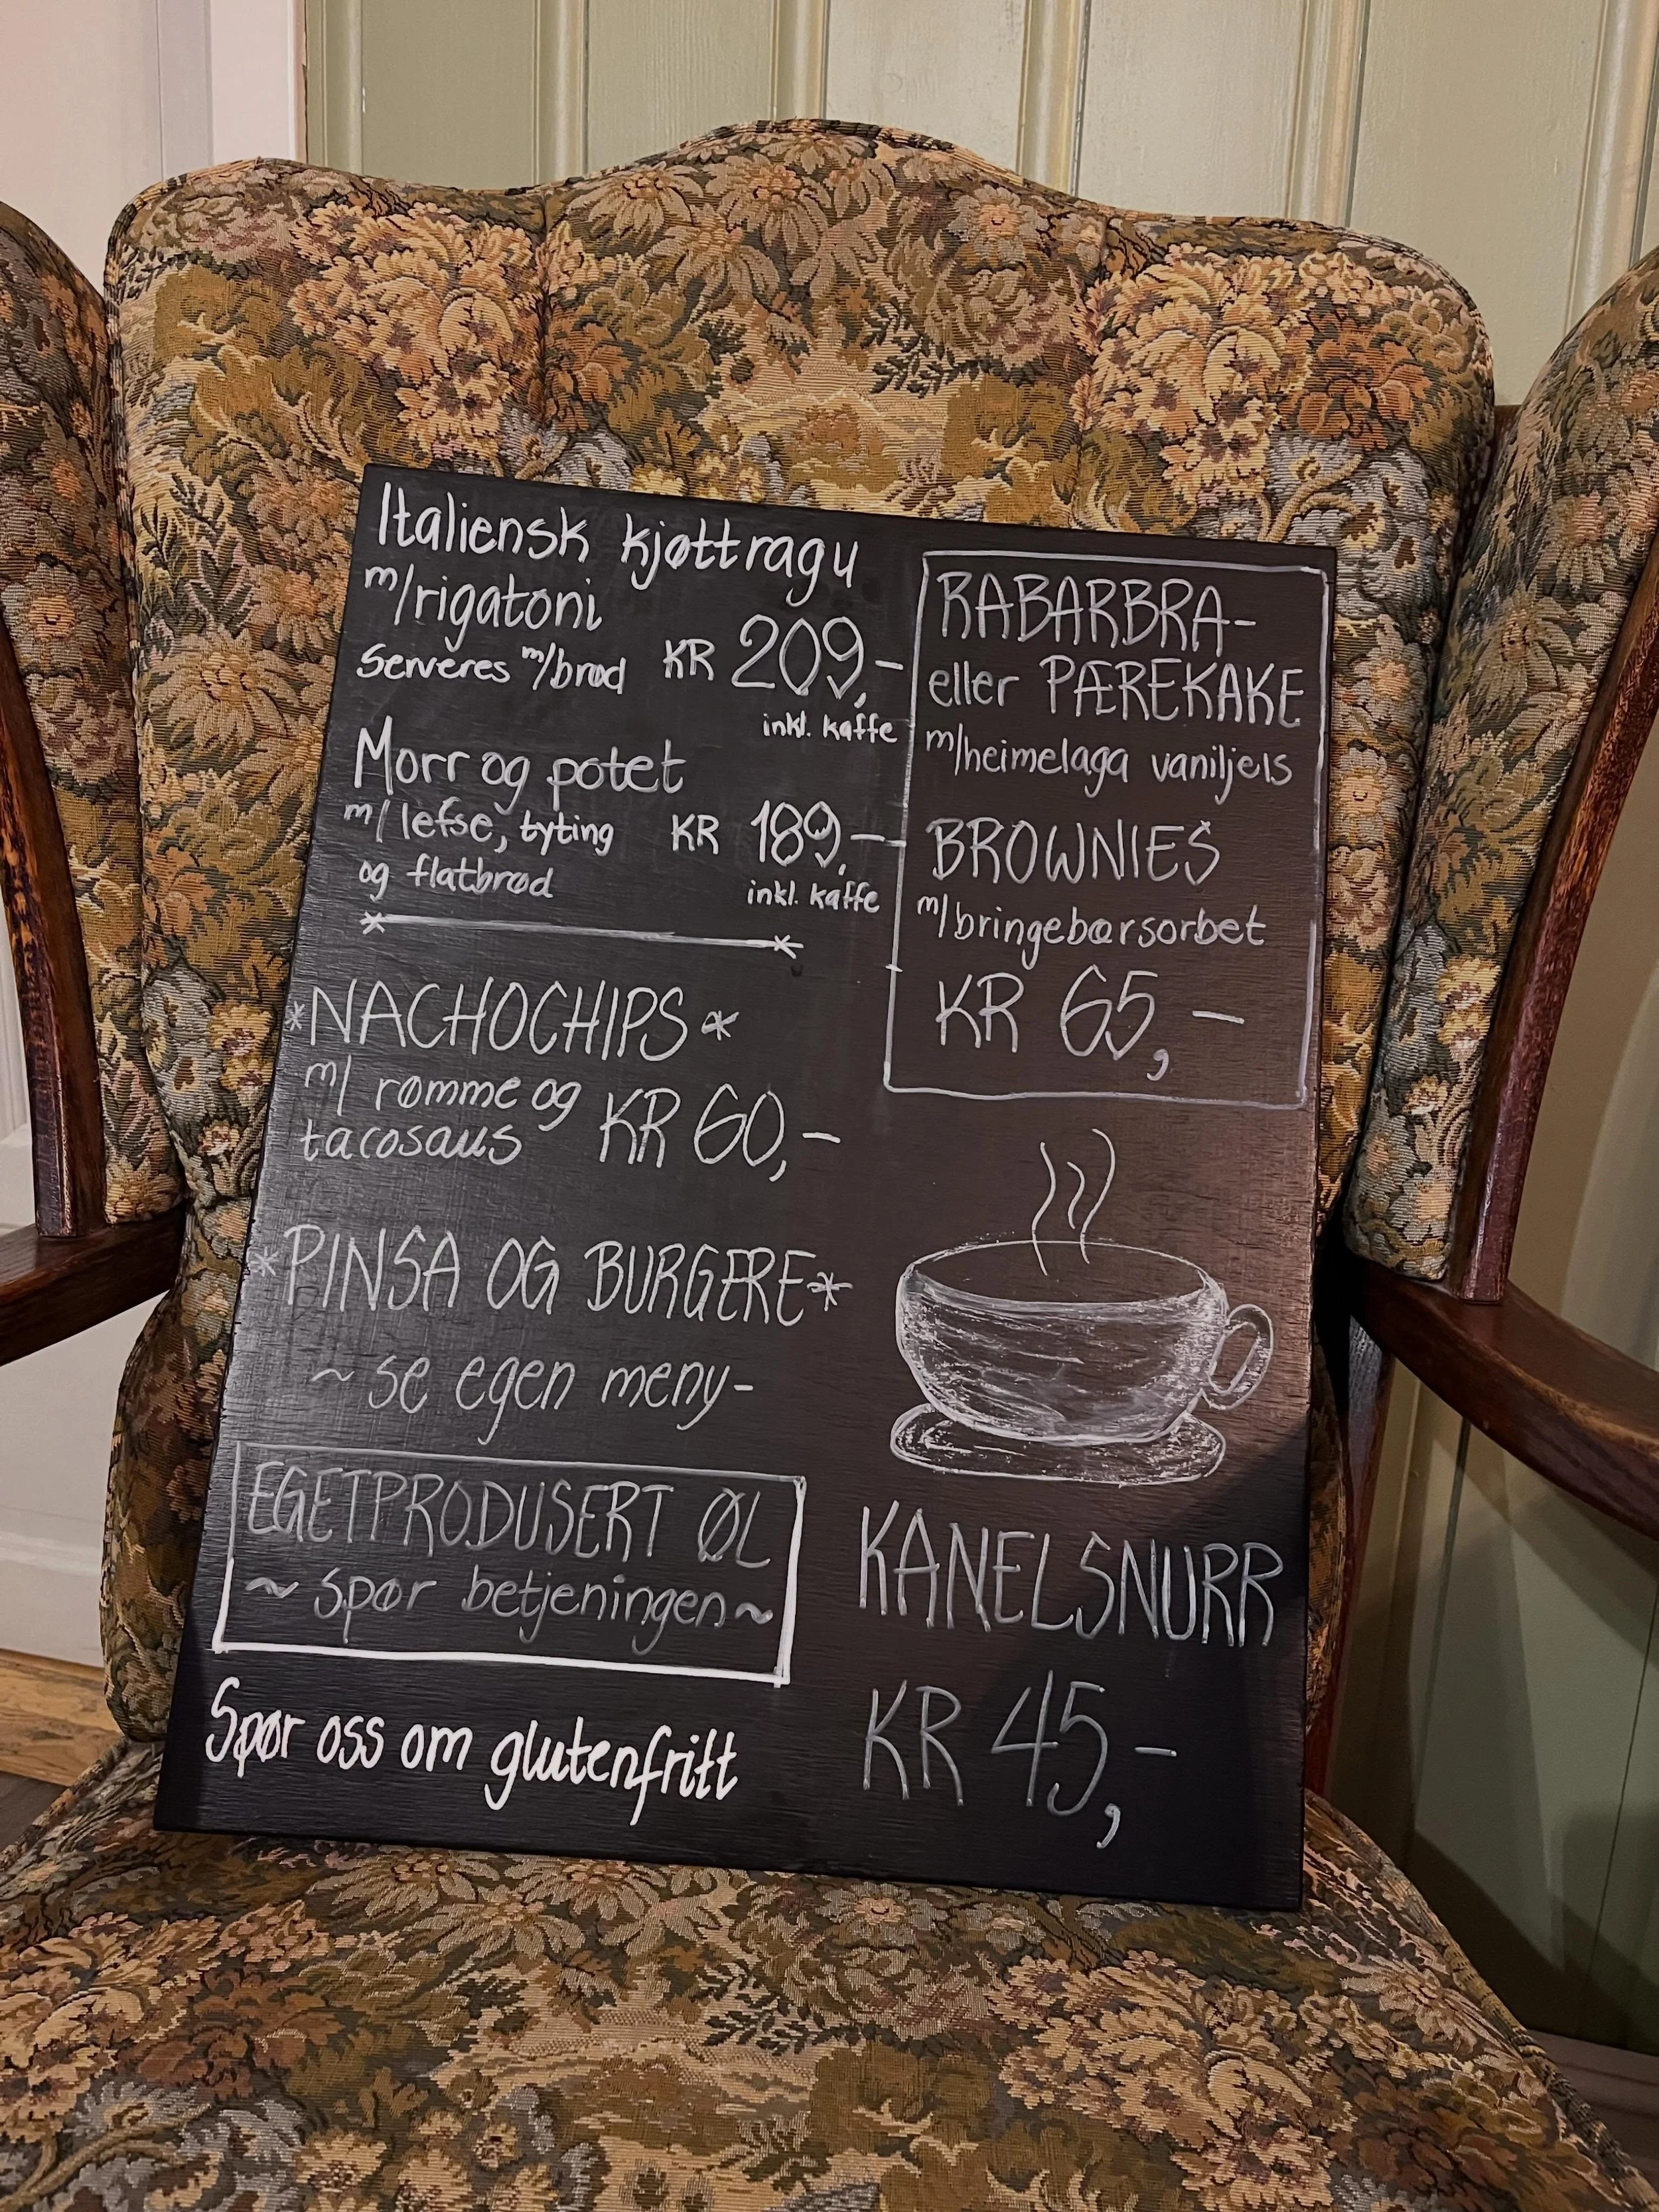 Italiensk kjøttragu
m/rigatoni
Serveres m/brød KR 209,-
inkl. kaffe
Morr og potet
m/ lefse, tyting KR 189,-
og flatbrød inkl. kaffe
*NACHOCHIPS*
m/ rømme og
tacosaus KR 60,-
*PINSA OG BURGERE*
~ se egen meny-
EGETPRODUSERT ØL
~ spør betjeningen ~
Spør oss om glutenfritt
RABARBRA-
eller PÆREKAKE
m/heimelaga vaniljeis
BROWNIES
m/bringebærsorbet
KR 65,-
KANELSNURR
KR 45,-